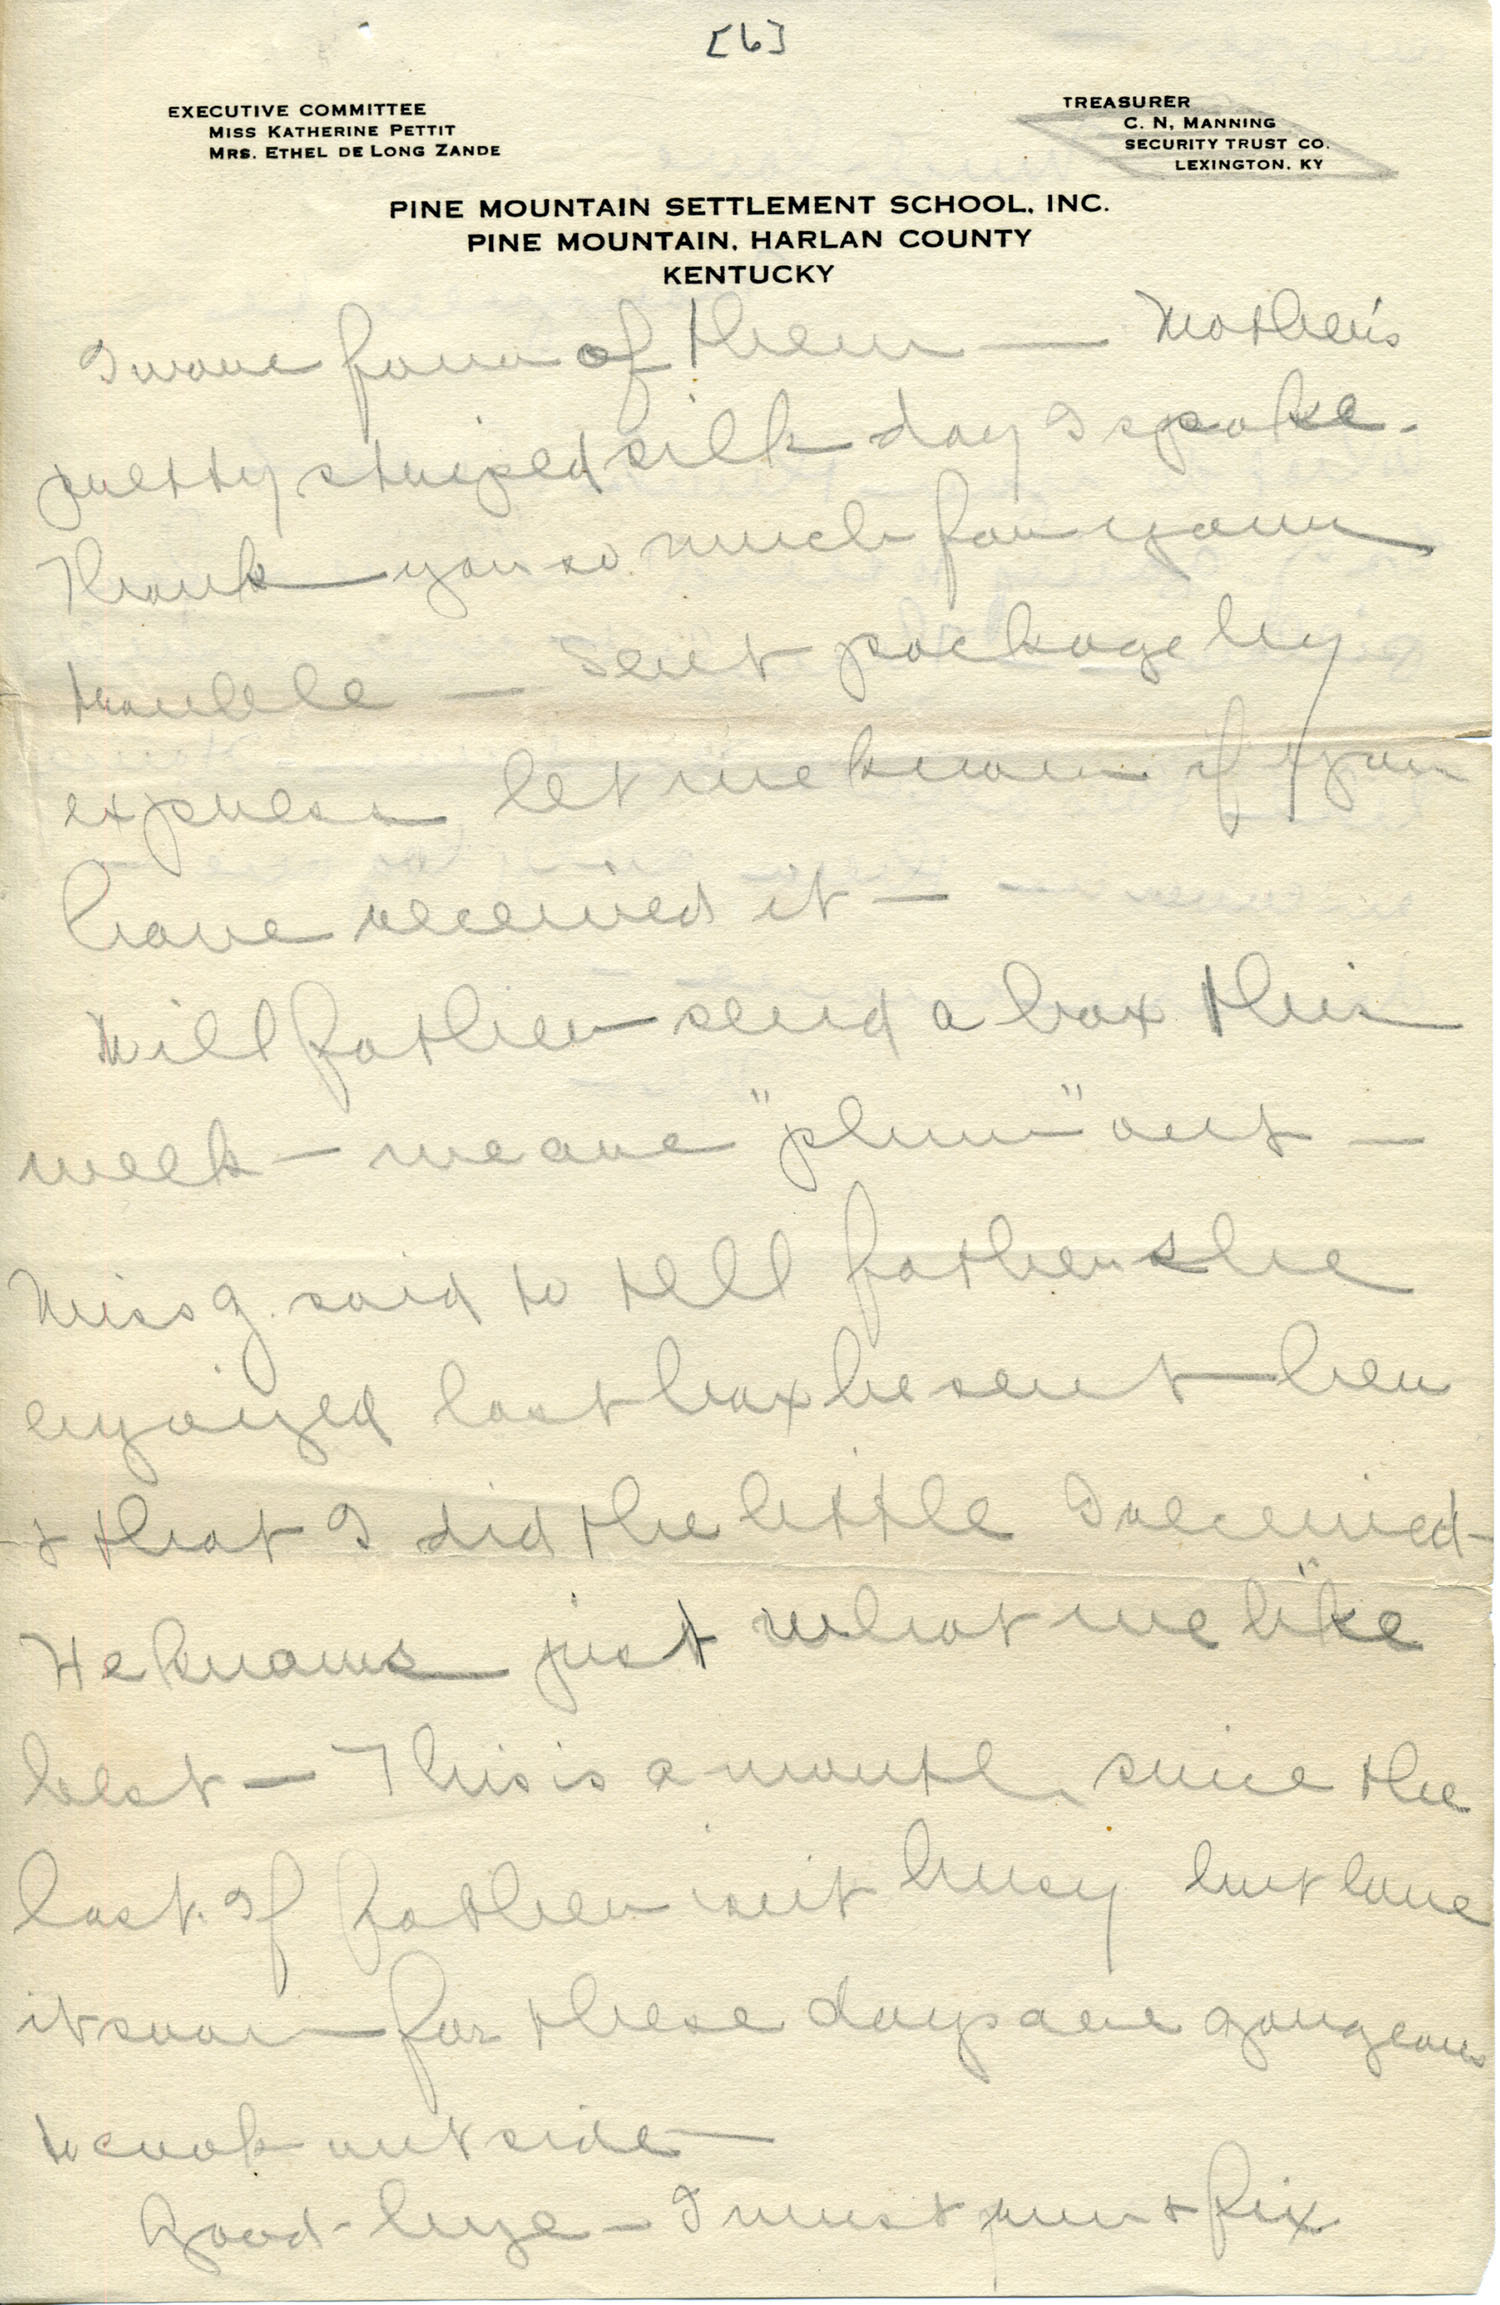 [6]
EXECUTIVE COMMITTEE
MISS KATHERINE PETTIT
MRS. ETHEL DE LONG ZANDE
TREASURER
C. N. MANNING
SECURITY TRUST CO.
LEXINGTON. KY
PINE MOUNTAIN SETTLEMENT SCHOOL, INC.
PINE MOUNTAIN, HARLAN COUNTY
KENTUCKY
I wore four of them — Mother's
pretty striped silk day I spoke.
Thank you so much for your
trouble — Sent package by
express let me know if you
have received it —
Will father send a box this
week — we are "plum" out —
Miss G. said to tell father she
enjoyed last box he sent her
& that I did the little I received —
He knows just what we like
best — This is a month since the
last. If father isn't busy but have
it soon — for these days are gorgeous
to cook outside —
Good-bye — I must run & fix